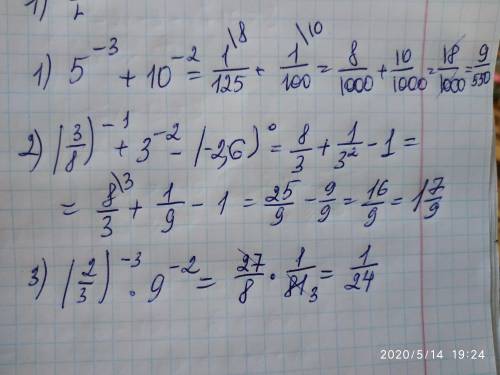 1) 5⁻³ + 10⁻² = 1\8/125 + 1\10/100 = 8/1000 + 10/1000 = 18/1000 = 9/550
2) (3/8)⁻¹ + 3⁻² - (-2,6)⁰ = 8/3 + 1/3² - 1 =
= 8\3/3 + 1/9 - 1 = 25/9 - 9/9 = 16/9 = 1 7/9
3) (2/3)⁻³ · 9⁻² = 27/8 · 1/81 3 = 1/24
2020/5/14 19:24